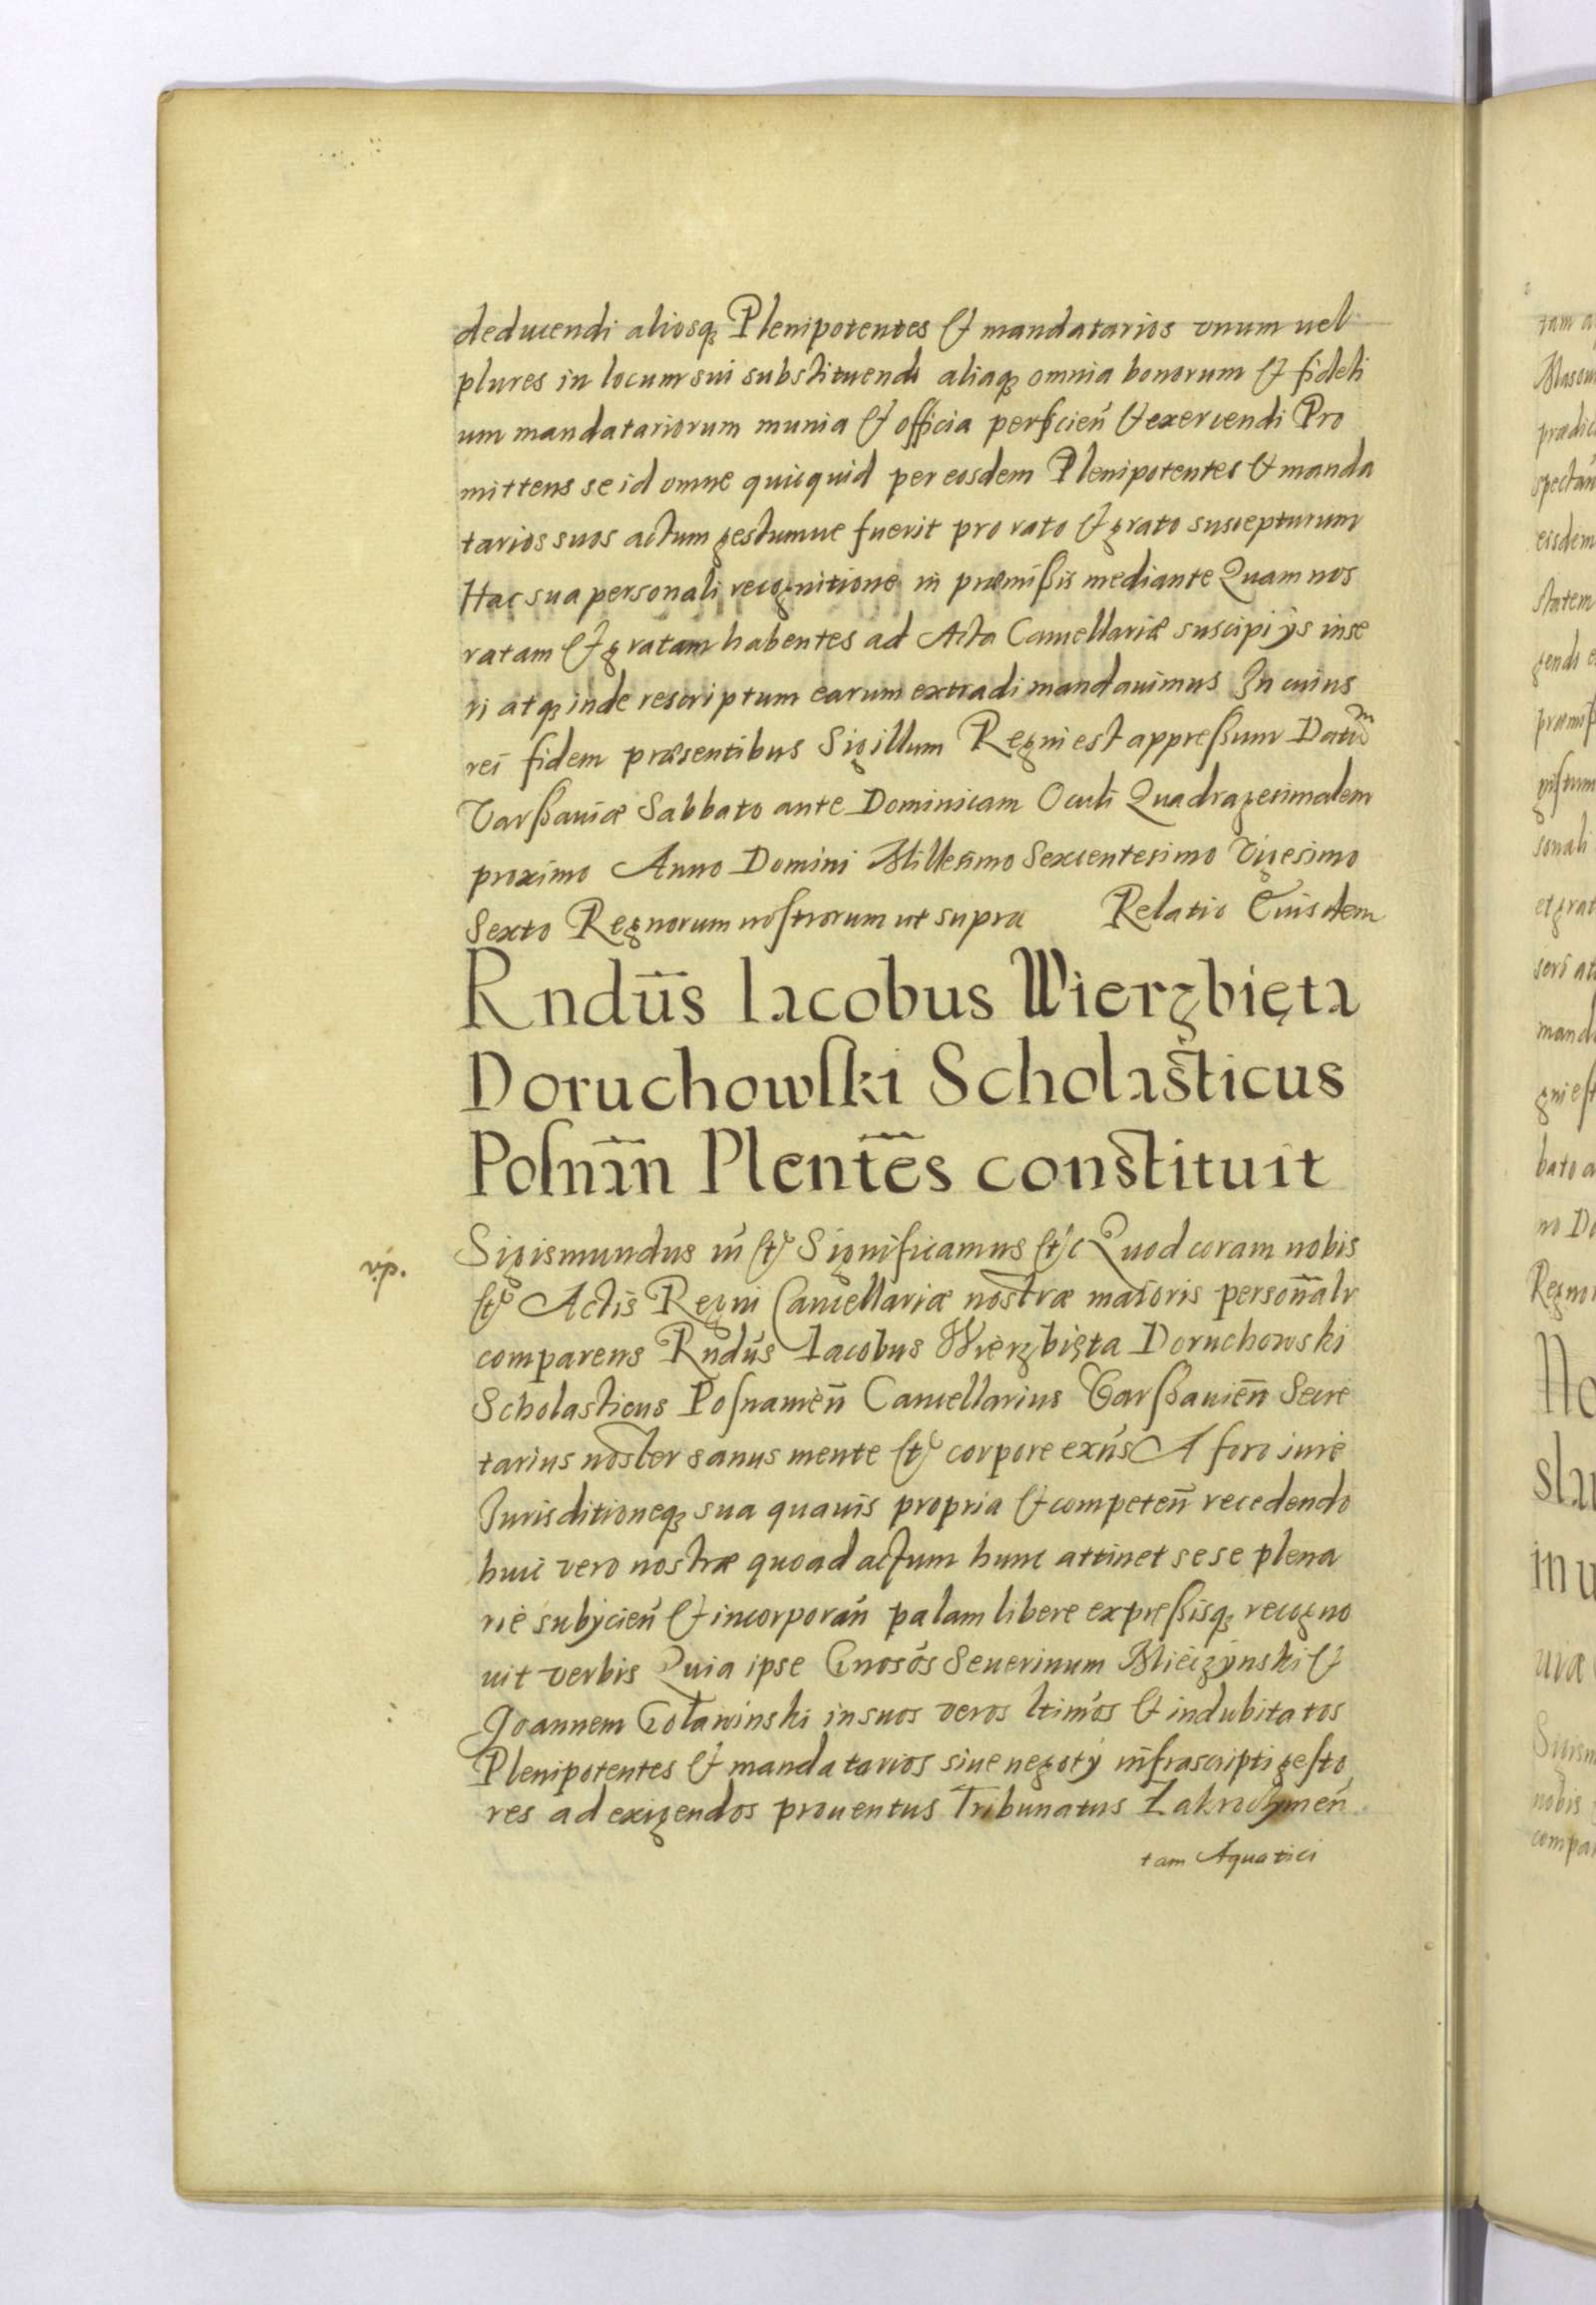 deducendi aliosq₃ Plenipotentes & mandatarios vnum uel
plures in locum sui substituendi aliaq₃ omnia bonorum & fideli
um mandatariorum munia & officia perficień & exercendi Pro
mittens se id omne quicquid per eosdem Plenipotentes & manda
tarios suos actum gestumue fuerit pro rato & grato suscepturum
Hac sua personali recognitione in præmißis mediante Quam nos
ratam & gratam habentes ad Acta Cancellariæ suscipi ÿs inse
ri atq₃ inde rescriptum earum extradi mandauimus In cuius
rei fidem præsentibus Sigillum Regni est appreßum Datum
Varßauiæ Sabbato ante Dominicam Oculi Quadragesimalem
proximo Anno Domini Millesimo Sexcentesimo Vigesimo
Sexto Regnorum nostrorum ut supra Relatio Eiusdem
Rndūs Iacobus Wierzbięta
Doruchowski Scholasticus
Posnān Plentēs constituit
Sigismundus &c Significamus &c Quod coram nobis
& Actis Regni Cancellariæ nostræ maioris persoñalr
comparens Rndus Iacobus Wierzbięta Doruchowski
Scholasticus Posnanień Cancellarius Varßauień Secre
tarius noster sanus mente & corpore exñs A foro iure
Iurisditioneq₃ sua quauis propria & competeñ recedendo
huic vero nostræ quoad actum hunc attinet sese plena
rie subÿcień & incorporań palam libere expreßisq₃ recogno
uit verbis Quia ipse Gnosos Seuerinum Mieczÿnski &
Joannem Goławinski in suos veros ltimos & indubitatos
Plenipotentes & mandatarios siue negotÿ infrascripti gesto
res ad exigendos prouentus Tribunatus Zakroczymeń
tam Aquatici